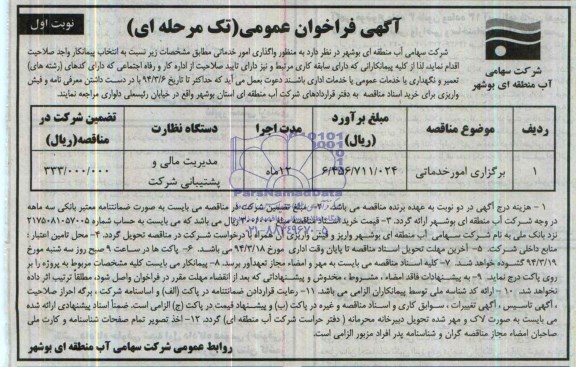 آگهی فراخوان عمومی(تک مرحله ای)
نوبت اول
شرکت سهامی
آب منطقه ای بوشهر
شرکت سهامی آب منطقه ای بوشهر در نظر دارد به منظور واگذاری امور خدماتی مطابق مشخصات زیر نسبت به انتخاب پیمانکار واجد صلاحیت
اقدام نماید، لذا از کلیه پیمانکارانی که دارای سابقه کاری مرتبط و نیز دارای تایید صلاحیت از اداره کار و رفاه اجتماعی که دارای کدهای (رشته های)
تعمیر و نگهداری یا خدمات عمومی یا خدمات اداری باشند دعوت بعمل می آید که حداکثر تا تاریخ ۹۴/۳/۶ با در دست داشتن معرفی نامه و فیش
واریزی برای خرید اسناد مناقصه به دفتر قراردادهای شرکت آب منطقه ای استان بوشهر واقع در خیابان رئیسعلی دلواری مراجعه نمایند.
ردیف موضوع مناقصه مبلغ برآورد (ریال) مدت اجرا دستگاه نظارت تضمین شرکت در مناقصه(ریال)
۱ برگزاری امورخدماتی ۶/۴۵۶/۷۱۱/۰۲۴ ۱۲ماه مدیریت مالی و پشتیبانی شرکت ۳۳۳/۰۰۰/۰۰۰
ParsNamadData
۰۲۱-۸۸۳۴۹۶۷۰-۵
۱ - هزینه درج آگهی در دو نوبت به عهده برنده مناقصه می باشد. ۲- مبلغ تضمین شرکت در مناقصه می بایست به صورت ضمانتنامه معتبر بانکی سه ماهه
در وجه شرکت آب منطقه ای بوشهر ارائه گردد. ۳- قیمت خرید اسناد مناقصه ریال می باشد که می بایست به حساب شماره ۲۱۷۵۰۸۱۰۵۷۰۰۵
نزد بانک ملی به نام شرکت سهامی آب منطقه ای بوشهر واریز و فیش واریزی آن همراه درخواست شرکت در مناقصه تحویل گردد. ۴- محل تامین اعتبار :
منابع داخلی شرکت. ۵- آخرین مهلت تحویل اسناد مناقصه تا پایان وقت اداری مورخ ۹۴/۳/۱۸ می باشد. ۶- پاکت ها در ساعت ۹ صبح روز سه شنبه مورخ
۹۴/۳/۱۹ گشوده خواهد شد. ۷- کلیه اسناد مناقصه می بایست به مهر و امضاء مجاز تعهدآور برسد. ۸- پیمانکار می بایست کلیه مشخصات مربوط به پروژه را بر
روی پاکت درج نماید. ۹- به پیشنهادات فاقد امضاء ، مشروط ، مخدوش و پیشنهاداتی که بعد از انقضاء مهلت مقرر در فراخوان واصل شود، مطلقاً ترتیب اثر داده
نخواهد شد. ۱۰ - ارائه کد شناسه ملی توسط پیمانکاران الزامی می باشد. ۱۱- رعایت قراردادن ضمانتنامه در پاکت (الف) و اساسنامه شرکت ، برگه احراز صلاحیت
، آگهی تاسیس ، آگهی تغییرات ، سوابق کاری و اسناد مناقصه و غیره در پاکت (ب) و پیشنهاد قیمت در پاکت (ج) الزامی است. ضمناً اسناد پیشنهادی ارائه شده
می بایست به صورت لاک و مهر شده تحویل دبیرخانه محرمانه ( دفتر حراست شرکت آب منطقه ای) گردد. ۱۲- اخذ تصویر تمام صفحات شناسنامه و کارت ملی
صاحبان امضاء مجاز مناقصه گران و شناسنامه پدر افراد مزبور الزامی است.
روابط عمومی شرکت سهامی آب منطقه ای بوشهر